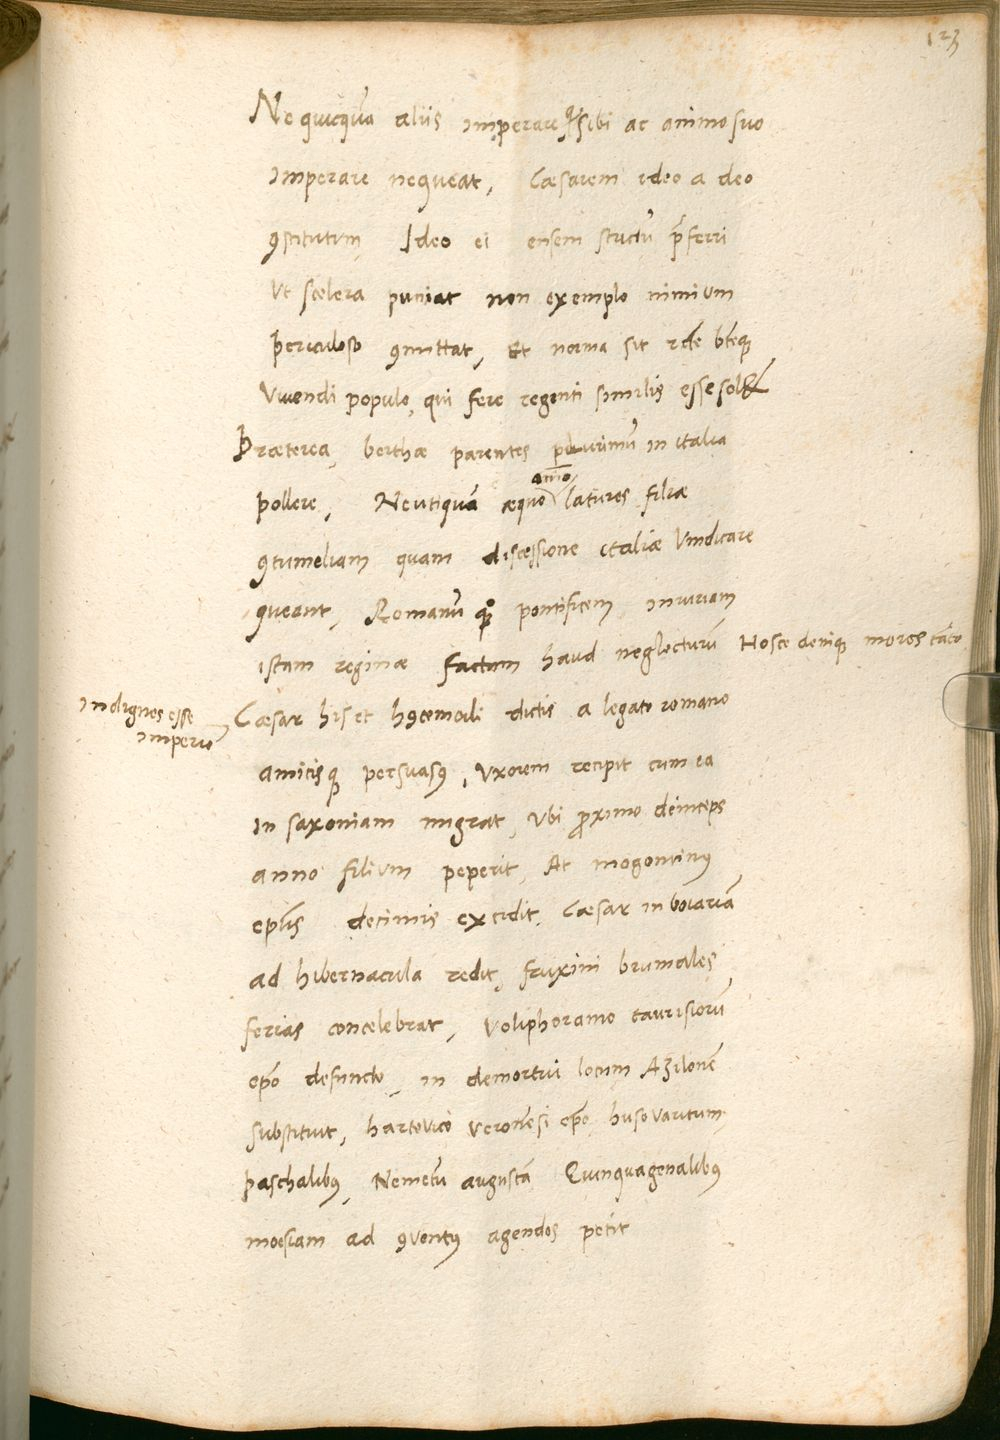 123
Ne quicquā aliis imperare qͥ sibi ac animo suo
imperare nequeat, Cæsarem ideo a deo
ꝯstitutum Ideo ei ensem strictū p̄ferri
Ut scelera puniat non exemplo nimium
periculoso ꝯmittat, Et norma sit recte bteq
Vivendi populo, qui fere regenti similis esse solet
Præterea, berthæ parentes plurimū in italia
pollere, Neutiquā æquo latures filiæ
anīo
ꝯtumeliam quam discessione italiæ Vindicare
queant, Romanū qͦ pontificem iniuriam
istam reginæ factam haud neglecturū Hosce deniq mores tāto
indignos esse
imperio
Cæsar his et hꝯcemodi dictis a legato romano
amicisq persuasꝰ, Uxorem recipit cum ea
in saxoniam migrat, Ubi ꝓximo deinceps
anno filium peperit, At mogontinꝰ
ep̄us decimis excidit, Cæsar in boiariā
ad hibernacula redit, fruxini brumales
ferias concelebrat, Voliphoramo taurisiorū
ep̄o defuncto, in demortui locum Azilonē
substituit, hartovico veronēsi ep̄o, husovaritum
paschalibꝰ, Nemetū augustā Quinquagenalibꝰ
moesiam ad ꝯventꝰ agendos petit